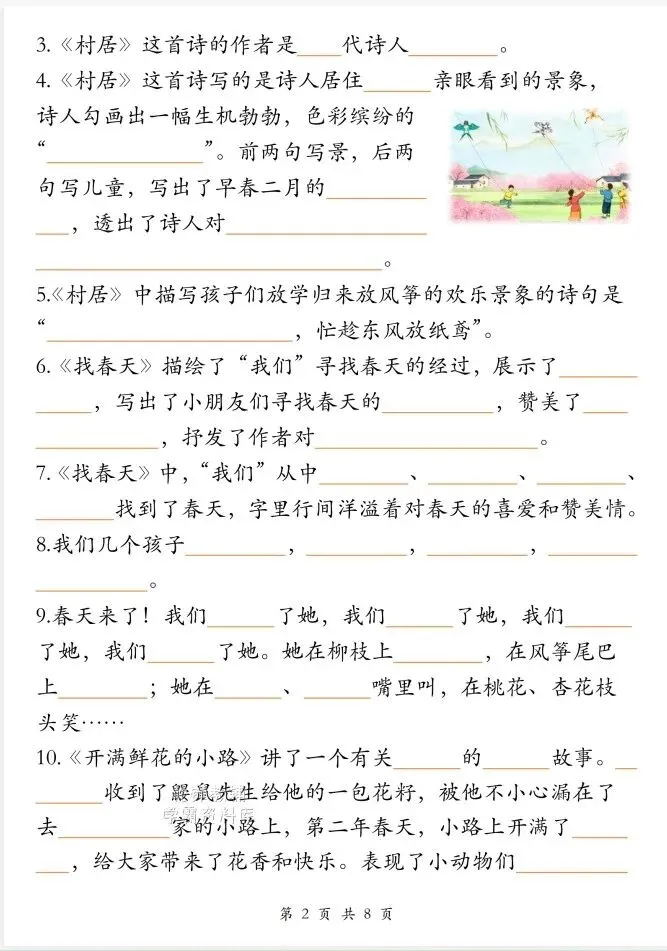 3.《村居》这首诗的作者是____代诗人________。
4.《村居》这首诗写的是诗人居住______亲眼看到的景象，
诗人勾画出一幅生机勃勃，色彩缤纷的
“______________”。前两句写景，后两
句写儿童，写出了早春二月的_________
___，透出了诗人对__________________
_______________________________。
5.《村居》中描写孩子们放学归来放风筝的欢乐景象的诗句是
“______________________，忙趁东风放纸鸢”。
6.《找春天》描绘了“我们”寻找春天的经过，展示了_______
_____，写出了小朋友们寻找春天的__________，赞美了____
___________，抒发了作者对____________________。
7.《找春天》中，“我们”从中________、________、________、
_______找到了春天，字里行间洋溢着对春天的喜爱和赞美情。
8.我们几个孩子_________，_________，_________，________
__________。
9.春天来了！我们______了她，我们______了她，我们______
了她，我们______了她。她在柳枝上________，在风筝尾巴
上________；她在______、______嘴里叫，在桃花、杏花枝
头笑……
10.《开满鲜花的小路》讲了一个有关______的______故事。__
______收到了鼹鼠先生给他的一包花籽，被他不小心漏在了
去__________家的小路上，第二年春天，小路上开满了_____
___，给大家带来了花香和快乐。表现了小动物们__________
学霸资料库
第 2 页 共 8 页